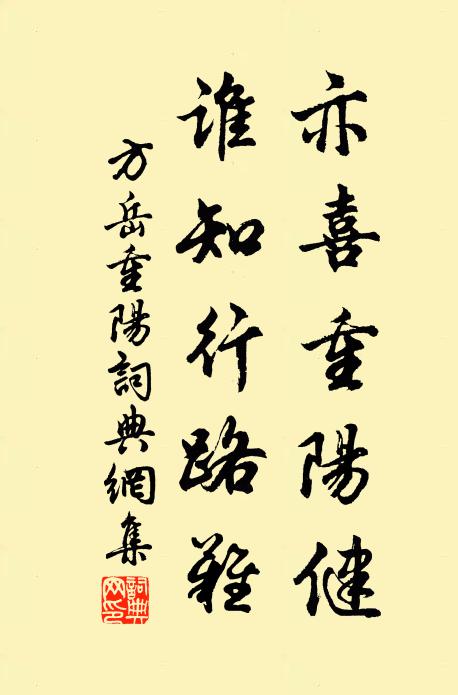 亦喜重陽健
誰知行路難
方岳重陽詞典網集
詞典網印